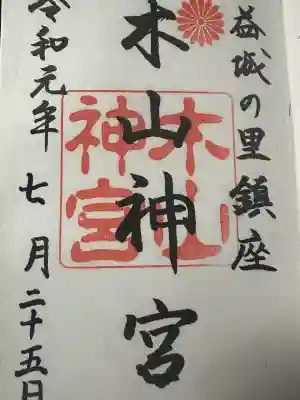 益城の里鎮座
木山神宮
木山神宮
令和元年七月二十五日